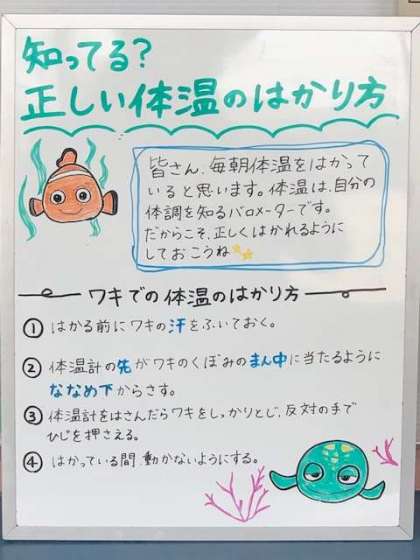 知ってる？
正しい体温のはかり方
皆さん、毎朝体温をはかって
いると思います。体温は、自分の
体調を知るバロメーターです。
だからこそ、正しくはかれるように
しておこうね
ワキでの体温のはかり方
① はかる前にワキの汗をふいておく。
② 体温計の先がワキのくぼみのまん中に当たるように
ななめ下からさす。
③ 体温計をはさんだらワキをしっかりとじ、反対の手で
ひじを押さえる。
④ はかっている間、動かないようにする。